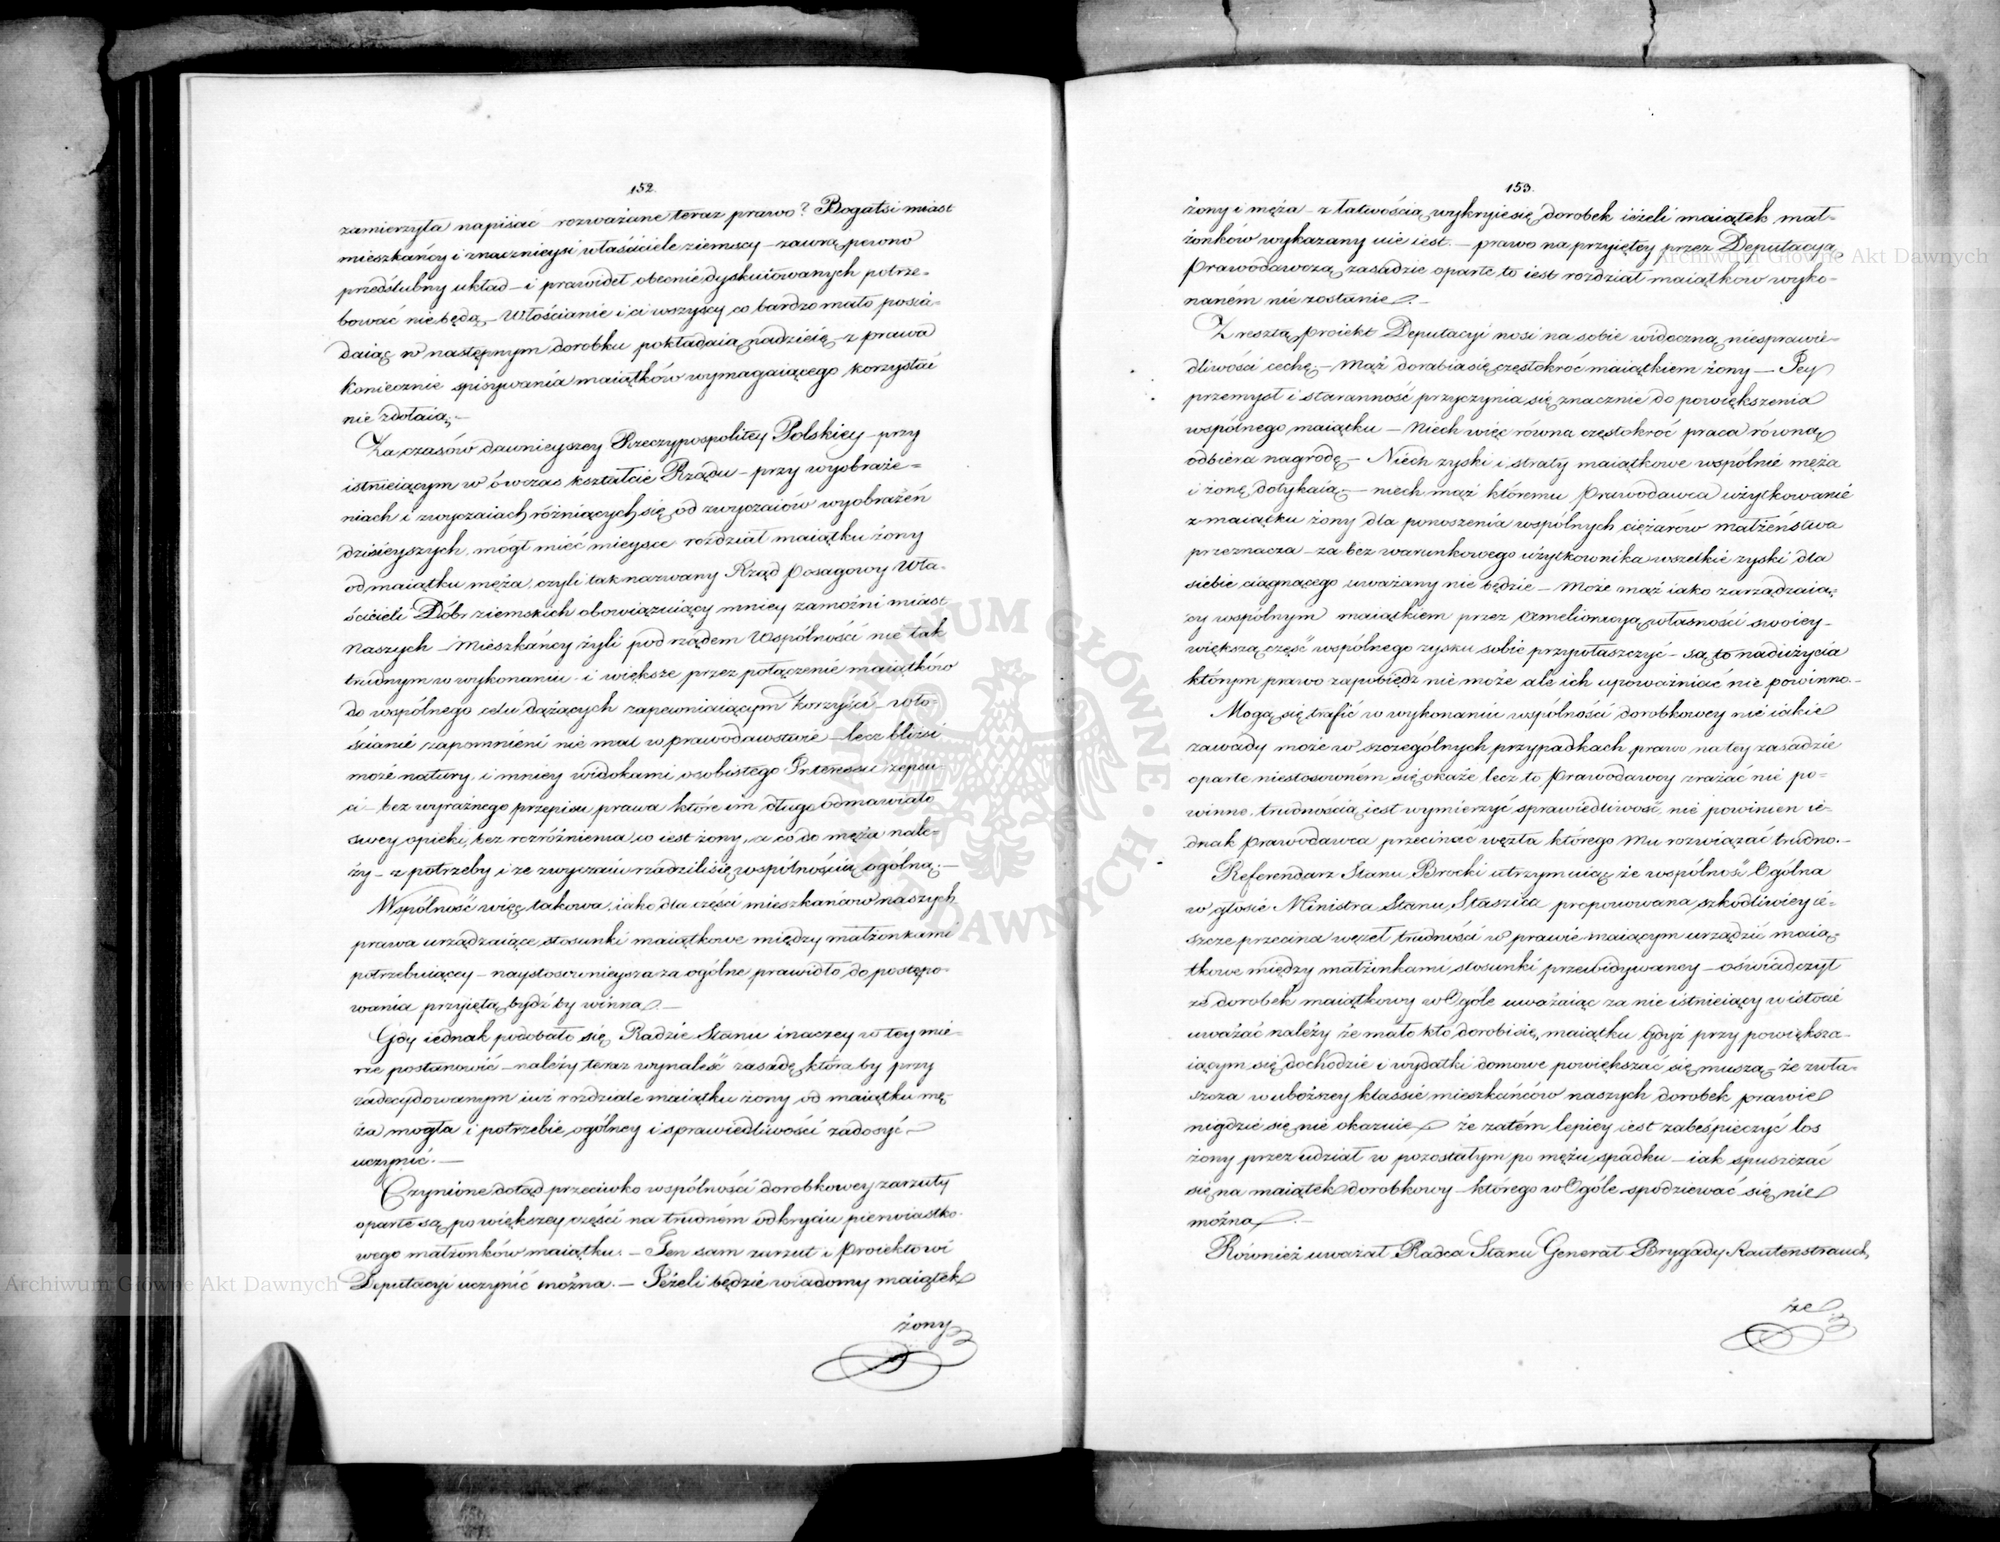 152.
zamierzyła napisać rozważane teraz prawo? Bogatsi miast
mieszkańcy i znacznieysi właściciele ziemscy – zawrą pewno
przedślubny układ – i prawideł obecnie dyskutowanych potrze=
bować nie będą – Włościanie i ci wszyscy co bardzo mało posia=
daiąc w następnym dorobku pokładaią nadzieię – z prawa
koniecznie spisywania maiątków wymagaiącego korzystać
nie zdołaią. –
Za czasów dawnieyszey Rzeczypospolitey Polskiey – przy
istnieiącym w ówczas kształcie Rządu – przy wyobraże=
niach i zwyczaiach różniących się od zwyczaiów wyobrażeń
dzisieyszych, mógł mieć mieysce rozdział maiątku żony
od maiątku męża, czyli tak nazwany Rząd posagowy Wła-
ścicieli Dóbr ziemskich obowiązuiący mniey zamożni miast
naszych – Mieszkańcy żyli pod rządem Wspólności nie tak
trudnym w wykonaniu i większe przez połączenie maiątków
do wspólnego celu dążących zapewniaiącym korzyści – wło-
ścianie zapomnieni nie mal w prawodawstwie – lecz bliżsi
może natury, i mniey widokami osobistego Interessu zepsu-
ci – bez wyraźnego przepisu prawa które im długo odmawiało
swey opieki, bez rozróżnienia co iest żony, a co do męża nale-
ży – z potrzeby i ze zwyczaiu rządzili się wspólnością ogólną. –
Wspólność więc takowa, iako dla części mieszkańców naszych
prawa urządzaiące stosunki maiątkowe między małżonkami
potrzebuiącey – naystosownieysza za ogólne prawidło do postępo-
wania przyiętą bydź by winna. –
Gdy iednak podobało się Radzie Stanu inaczey w tey mie-
rze postanowić – należy teraz wynaleść zasadę, która by przy
zadecydowanym iuż rozdziale maiątku żony od maiątku mę-
ża mogła i potrzebie ogólney i sprawiedliwości zadosyć –
uczynić. –
Czynione dotąd przeciwko wspólności dorobkowey zarzuty
oparte są po większey części na trudném odkryciu pierwiastko-
wego małżonków maiątku. – Ten sam zarzut i proiektowi
Deputacyi uczynić można. – Jeżeli będzie wiadomy maiątek
żony
153.
żony i męża – z łatwością wykryie się dorobek ieżeli maiątek mał-
żonków wykazany nie iest. – prawo na przyiętey przez Deputacyą
Prawodawczą zasadzie oparte to iest rozdział maiątków wyko-
naném nie zostanie. –
Z resztą, proiekt Deputacyi nosi na sobie widoczną niesprawie-
dliwości cechę, – Mąż dorabia się częstokroć maiątkiem żony – Jey
przemysł i staranność przyczynia się znacznie do powiększenia
wspólnego maiątku – Niech więc równa częstokroć praca równą
odbiera nagrodę – Niech zyski i straty maiątkowe wspólnie męża
i żonę dotykaią – niech mąż któremu Prawodawca użytkowanie
z maiątku żony dla ponoszenia wspólnych ciężarów małżeństwa
przeznacza – za bez warunkowego użytkownika wszelkie zyski dla
siebie ciągnącego uważany nie będzie – Może mąż iako zarządzaią-
cy wspólnym maiątkiem przez amelioracyą własności swoiey –
większą część wspólnego zysku sobie przywłaszczyć – są to nadużycia
którym prawo zapobiedz nie może ale ich upoważniać nie powinno. –
Mogą się trafić w wykonaniu wspólności dorobkowey nie iakie
zawady może w szczególnych przypadkach prawo na tey zasadzie
oparte niestosowném się okaże lecz to Prawodawcy zrażać nie po-
winno, trudnością iest wymierzyć sprawiedliwość, nie powinien ie-
dnak prawodawca przecinać węzła którego Mu rozwiązać trudno. –
Referendarz Stanu Brocki utrzymuiąc że wspólność Ogólna
w głosie Ministra Stanu Staszica proponowana, szkodliwiey ie-
szcze przecina węzeł trudności w prawie maiącym urządzić maią-
tkowe między małżonkami stosunki przewidywaney – oświadczył
że dorobek maiątkowy w Ogóle uważaiąc za nie istnieiący w istocie
uważać należy że mało kto dorobi się, maiątku gdyż przy powiększa-
iącym się dochodzie i wydatki domowe powiększać się muszą, – że zwła-
szcza w uboższey klassie mieszkańców naszych dorobek prawie
nigdzie się nie okazuie – że zatém lepiey iest zabeśpieczyć los
żony przez udział w pozostałym po mężu spadku – iak spuszczać
się na maiątek dorobkowy – którego w Ogóle spodziewać się nie
można. –
Również uważał Radca Stanu Generał Brygady Rautenstrauch,
że